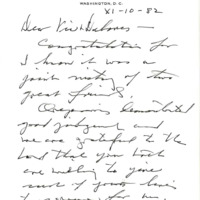 WASHINGTON, D.C.
XI-10-82
Dear
Congratulations for
I know it was a
joint victory of two
great friends
Oregonians demonstrated
good judgment and
we are grateful to the
Lord that you both
are willing to give
most of your lives